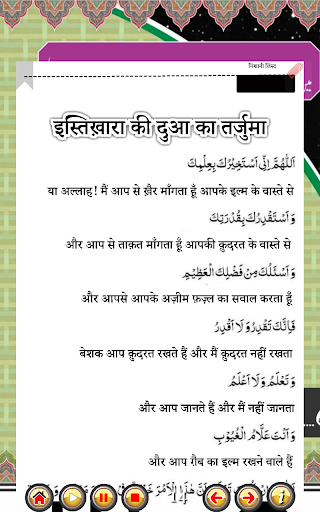 निशानी लिस्ट
इस्तिख़ारा की दुआ का तर्जुमा
اَللّٰهُمَّ اِنِّى اَسْتَخِيْرُكَ بِعِلْمِكَ
या अल्लाह! मैं आप से ख़ैर माँगता हूँ आपके इल्म के वास्ते से
وَاَسْتَقْدِرُكَ بِقُدْرَتِكَ
और आप से ताक़त माँगता हूँ आपकी क़ुदरत के वास्ते से
وَاَسْئَلُكَ مِنْ فَضْلِكَ الْعَظِيْمِ
और आपसे आपके अज़ीम फ़ज़्ल का सवाल करता हूँ
فَاِنَّكَ تَقْدِرُ وَلَا اَقْدِرُ
बेशक आप क़ुदरत रखते हैं और मैं क़ुदरत नहीं रखता
وَتَعْلَمُ وَلَا اَعْلَمُ
और आप जानते हैं और मैं नहीं जानता
وَاَنْتَ عَلَّامُ الْغُيُوْبِ
और आप ग़ैब का इल्म रखने वाले हैं
14